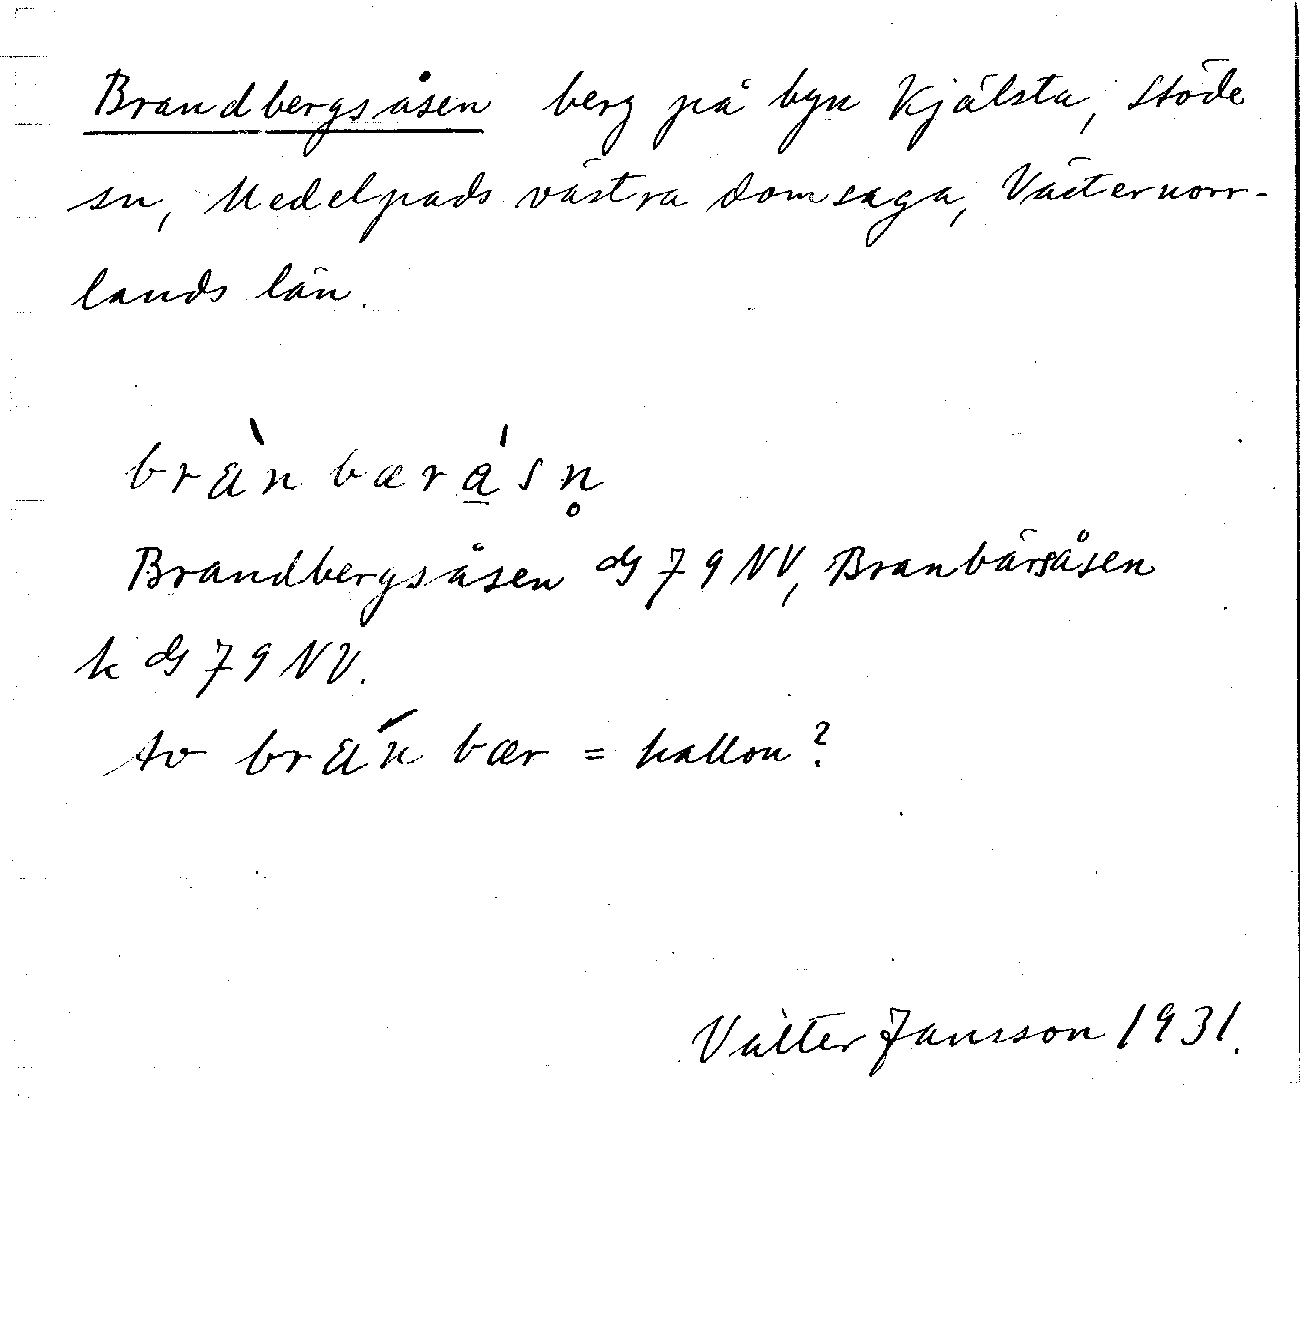 Brandbergsåsen berg på byn Kjälsta, Stöde
sn, Medelpads västra domsaga, Västernorr-
lands län.
brànbærá̲sn̥
Brandbergsåsen dG 79 NV, Branbärsåsen
k dG 79 NV.
Av bránbær = hallon?
Valter Jansson 1931.